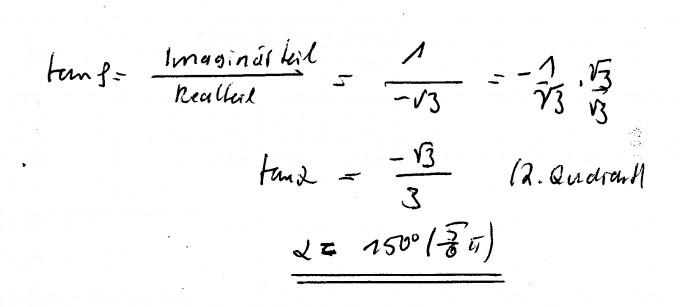 tan φ = Imaginärteil / Realteil = 1 / -√3 = - 1 / √3 · √3 / √3
tan α = -√3 / 3 (2. Quadrant)
α = 150° (5/6 π)